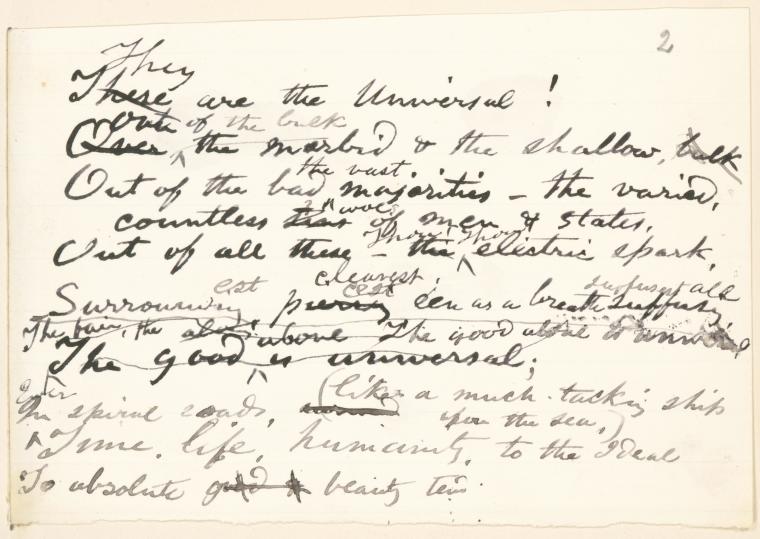 2
They
These are the Universal!
out of the bulk
Over the morbid & the shallow, bulk
the vast
Out of the bad majorities – the varied,
countless of men & States,
Out of all these – the electric spark,
est clearest, cest suffusest all
Surrouning een as a breath suffusing
The pure, the above The good alone is universal
The good is universal;
Enter
In spiral roads, (like a much-tacking ship
upon the sea,)
Time, life, humanity, to the Ideal
To absolute good & beauty